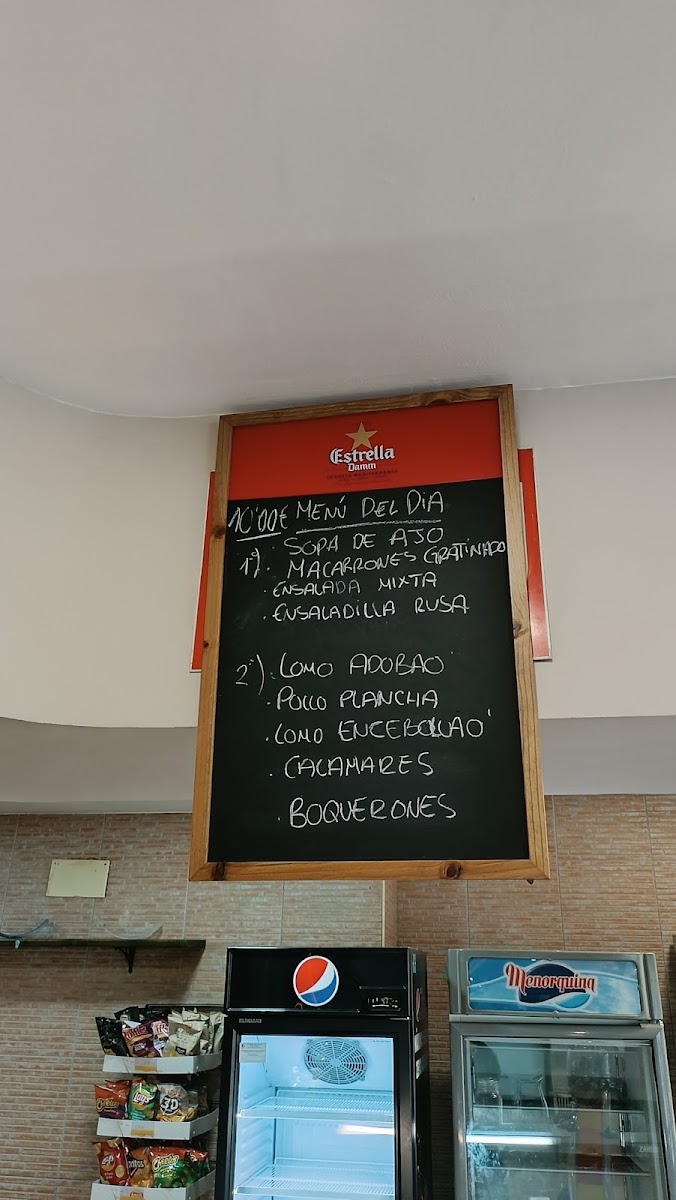 Estrella
Damm
10'00€ MENÚ DEL DIA
1º) · SOPA DE AJO
· MACARRONES GRATINADO
· ENSALADA MIXTA
· ENSALADILLA RUSA
2º) · LOMO ADOBAO'
· POLLO PLANCHA
· LOMO ENCEBOLLAO'
· CALAMARES
· BOQUERONES
Menorquina
Lay's
Cheetos